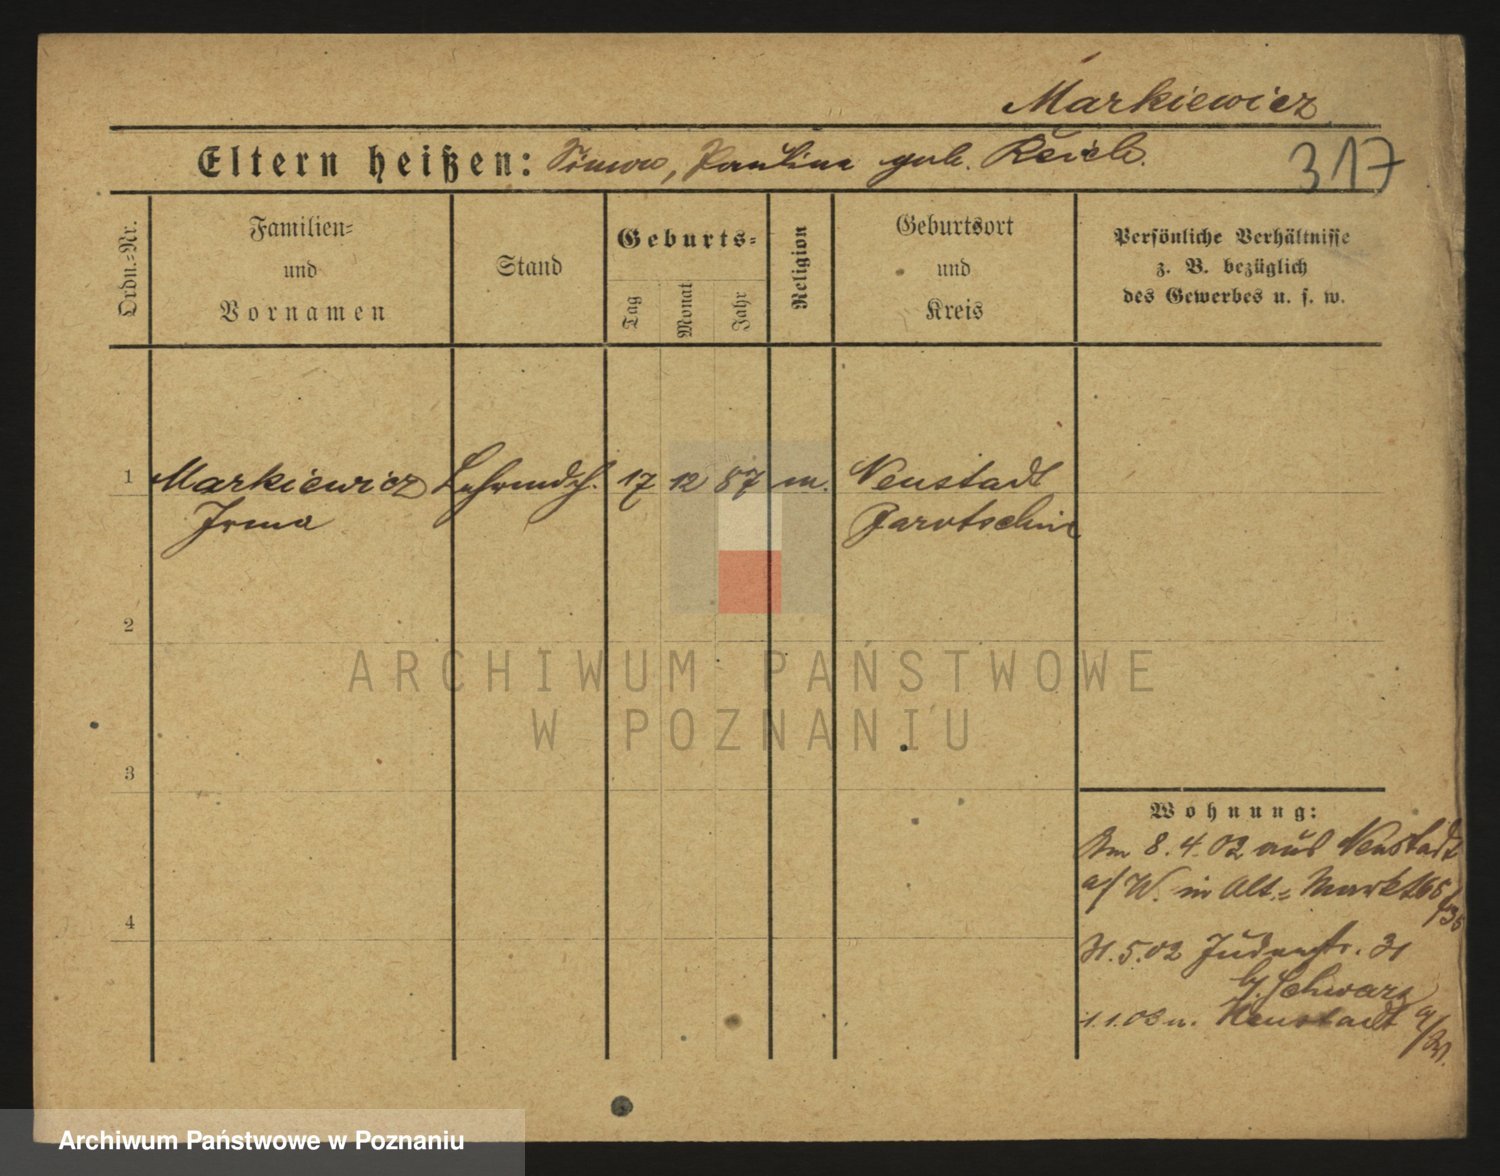 Markiewicz
317
Eltern heißen: Simon, Paulina geb. Reich.
Ordn.-Nr.
Familien-
und
Vornamen
Stand
Geburts-
Tag
Monat
Jahr
Religion
Geburtsort
und
Kreis
Persönliche Verhältnisse
z. B. bezüglich
des Gewerbes u. s. w.
1 Markiewicz 17 12 87 m. Neustadt
Irma Jarotschin
2
3
4
Wohnung:
Am 8.4.02 aus Neustadt
a/W. in Alt.- Markt
31.5.02 Judenstr. 31
b/ Schwarz
1.1.03 n. Neustadt a/W.
ARCHIWUM PAŃSTWOWE
W POZNANIU
Archiwum Państwowe w Poznaniu